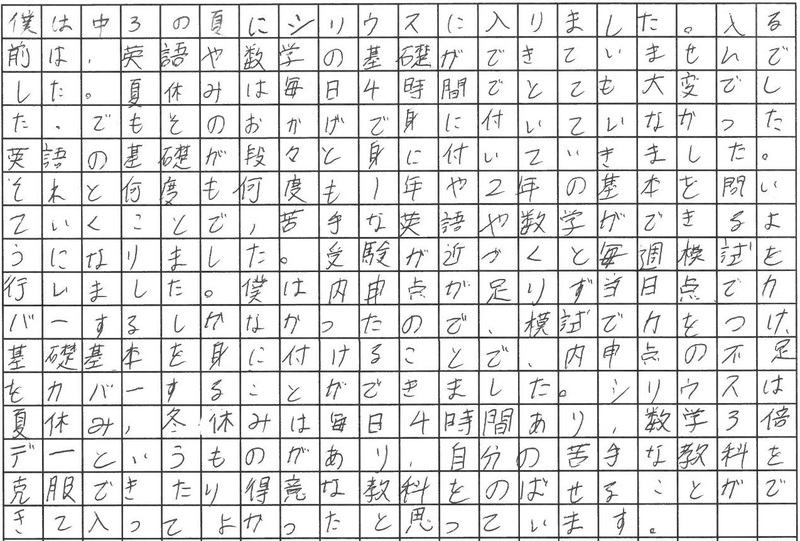 僕は中3の夏にシリウスに入りました。入る
前は、英語や数学の基礎ができていませんで
した。夏休みは毎日4時間でとても大変でし
た、でもそのおかげで身に付いていなかった
英語の基礎が段々と身に付いていきました。
それと何度も何度も1年や2年の基本を問い
ていくことで、苦手な英語や数学ができるよ
うになりました。受験が近づくと毎週模試を
行いました。僕は内申点が足りず当日点でカ
バーするしがなかったので、模試で力をつけ、
基礎基本を身に付けることで、内申点の不足
をカバーすることができました。シリウスは
夏休み、冬休みは毎日4時間あり、数学3倍
デーというものがあり、自分の苦手な教科を
克服できたり得意な教科をのばせることがで
きて入ってよかったと思っています。